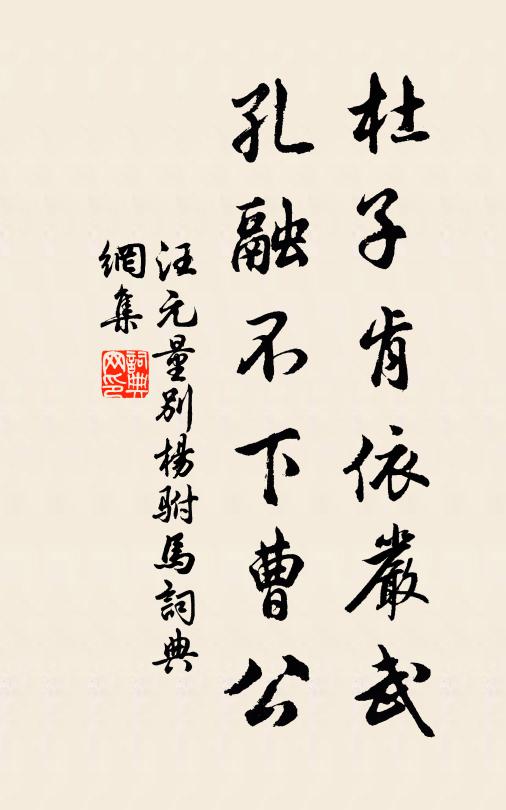 杜子肯依嚴武
孔融不下曹公
汪元量別楊駙馬詞典
網集
詞典網印